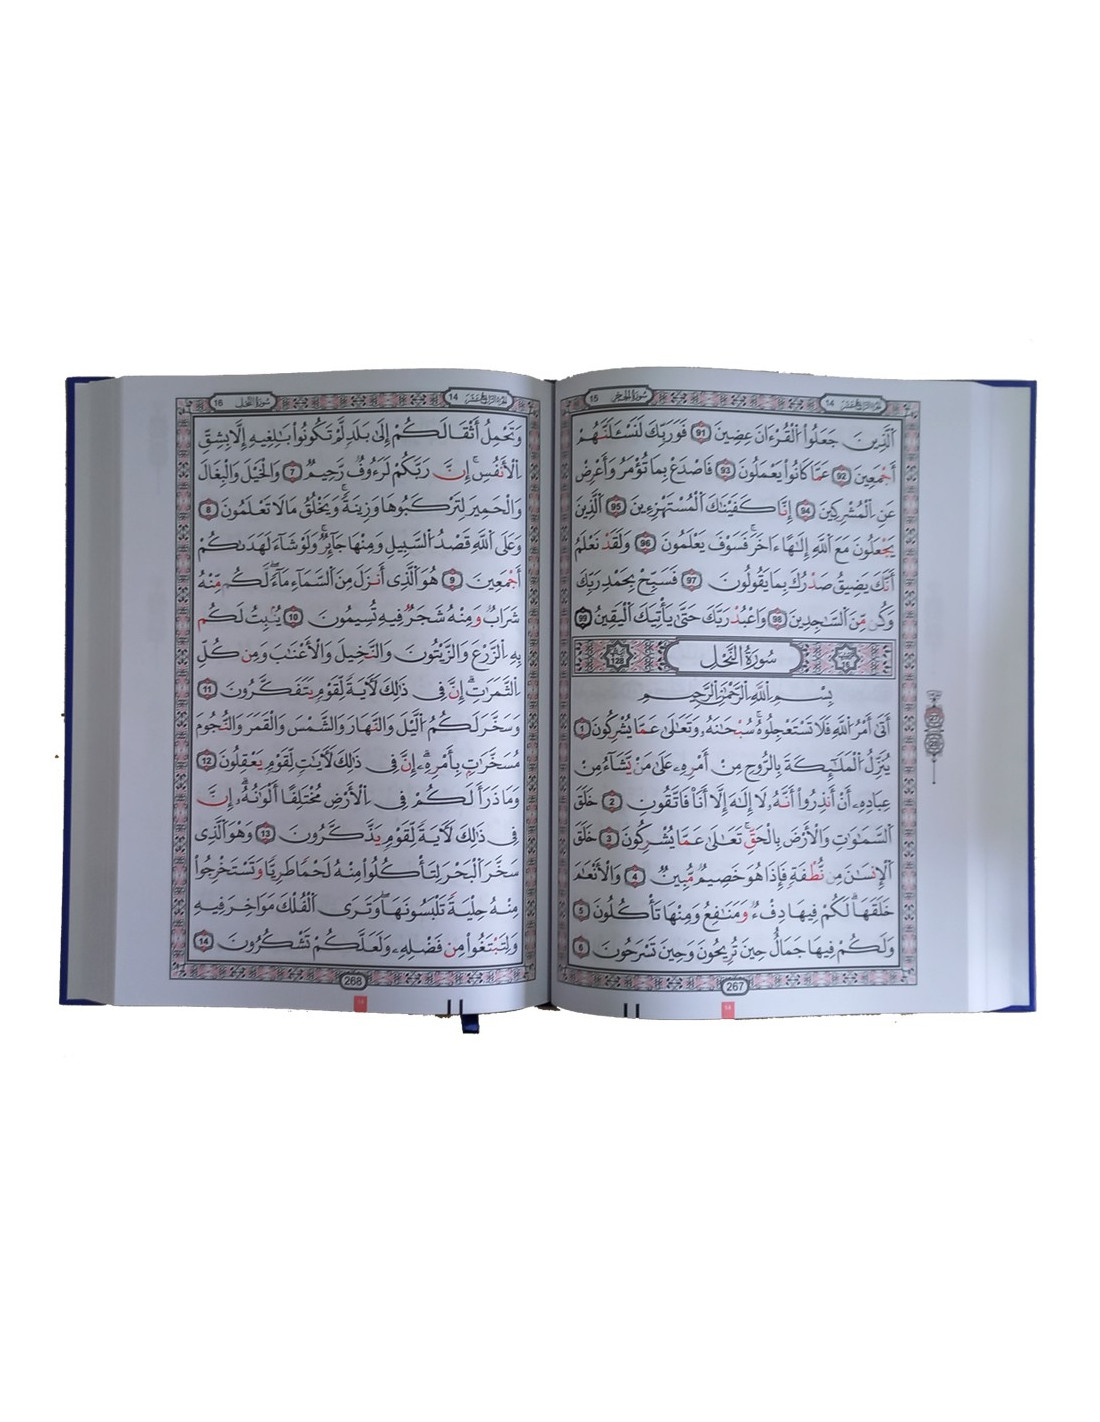 الجزء الرابع عشر 14
سورة الحجر 15
ٱلَّذِينَ جَعَلُوا۟ ٱلْقُرْءَانَ عِضِينَ 91 فَوَرَبِّكَ لَنَسْـَٔلَنَّهُمْ
أَجْمَعِينَ 92 عَمَّا كَانُوا۟ يَعْمَلُونَ 93 فَٱصْدَعْ بِمَا تُؤْمَرُ وَأَعْرِضْ
عَنِ ٱلْمُشْرِكِينَ 94 إِنَّا كَفَيْنَٰكَ ٱلْمُسْتَهْزِءِينَ 95 ٱلَّذِينَ
يَجْعَلُونَ مَعَ ٱللَّهِ إِلَٰهًا ءَاخَرَ ۚ فَسَوْفَ يَعْلَمُونَ 96 وَلَقَدْ نَعْلَمُ
أَنَّكَ يَضِيقُ صَدْرُكَ بِمَا يَقُولُونَ 97 فَسَبِّحْ بِحَمْدِ رَبِّكَ
وَكُن مِّنَ ٱلسَّٰجِدِينَ 98 وَٱعْبُدْ رَبَّكَ حَتَّىٰ يَأْتِيَكَ ٱلْيَقِينُ 99
سُورَةُ النَّحْلِ 128
بِسْمِ ٱللَّهِ ٱلرَّحْمَٰنِ ٱلرَّحِيمِ
أَتَىٰٓ أَمْرُ ٱللَّهِ فَلَا تَسْتَعْجِلُوهُ ۚ سُبْحَٰنَهُۥ وَتَعَٰلَىٰ عَمَّا يُشْرِكُونَ 1
يُنَزِّلُ ٱلْمَلَٰٓئِكَةَ بِٱلرُّوحِ مِنْ أَمْرِهِۦ عَلَىٰ مَن يَشَآءُ مِنْ
عِبَادِهِۦٓ أَنْ أَنذِرُوٓا۟ أَنَّهُۥ لَآ إِلَٰهَ إِلَّآ أَنَا۠ فَٱتَّقُونِ 2 خَلَقَ
ٱلسَّمَٰوَٰتِ وَٱلْأَرْضَ بِٱلْحَقِّ ۚ تَعَٰلَىٰ عَمَّا يُشْرِكُونَ 3 خَلَقَ
ٱلْإِنسَٰنَ مِن نُّطْفَةٍ فَإِذَا هُوَ خَصِيمٌ مُّبِينٌ 4 وَٱلْأَنْعَٰمَ
خَلَقَهَا ۗ لَكُمْ فِيهَا دِفْءٌ وَمَنَٰفِعُ وَمِنْهَا تَأْكُلُونَ 5
وَلَكُمْ فِيهَا جَمَالٌ حِينَ تُرِيحُونَ وَحِينَ تَسْرَحُونَ 6
267
الجزء الرابع عشر 14
سورة النحل 16
وَتَحْمِلُ أَثْقَالَكُمْ إِلَىٰ بَلَدٍ لَّمْ تَكُونُوا۟ بَٰلِغِيهِ إِلَّا بِشِقِّ
ٱلْأَنفُسِ ۚ إِنَّ رَبَّكُمْ لَرَءُوفٌ رَّحِيمٌ 7 وَٱلْخَيْلَ وَٱلْبِغَالَ
وَٱلْحَمِيرَ لِتَرْكَبُوهَا وَزِينَةً ۚ وَيَخْلُقُ مَا لَا تَعْلَمُونَ 8
وَعَلَى ٱللَّهِ قَصْدُ ٱلسَّبِيلِ وَمِنْهَا جَآئِرٌ ۚ وَلَوْ شَآءَ لَهَدَىٰكُمْ
أَجْمَعِينَ 9 هُوَ ٱلَّذِىٓ أَنزَلَ مِنَ ٱلسَّمَآءِ مَآءً ۖ لَّكُم مِّنْهُ
شَرَابٌ وَمِنْهُ شَجَرٌ فِيهِ تُسِيمُونَ 10 يُنۢبِتُ لَكُم
بِهِ ٱلزَّرْعَ وَٱلزَّيْتُونَ وَٱلنَّخِيلَ وَٱلْأَعْنَٰبَ وَمِن كُلِّ
ٱلثَّمَرَٰتِ ۗ إِنَّ فِى ذَٰلِكَ لَءَايَةً لِّقَوْمٍ يَتَفَكَّرُونَ 11
وَسَخَّرَ لَكُمُ ٱلَّيْلَ وَٱلنَّهَارَ وَٱلشَّمْسَ وَٱلْقَمَرَ ۖ وَٱلنُّجُومُ
مُسَخَّرَٰتٌۢ بِأَمْرِهِۦٓ ۗ إِنَّ فِى ذَٰلِكَ لَءَايَٰتٍ لِّقَوْمٍ يَعْقِلُونَ 12
وَمَا ذَرَأَ لَكُمْ فِى ٱلْأَرْضِ مُخْتَلِفًا أَلْوَٰنُهُۥٓ ۗ إِنَّ
فِى ذَٰلِكَ لَءَايَةً لِّقَوْمٍ يَذَّكَّرُونَ 13 وَهُوَ ٱلَّذِى
سَخَّرَ ٱلْبَحْرَ لِتَأْكُلُوا۟ مِنْهُ لَحْمًا طَرِيًّا وَتَسْتَخْرِجُوا۟
مِنْهُ حِلْيَةً تَلْبَسُونَهَا وَتَرَى ٱلْفُلْكَ مَوَاخِرَ فِيهِ
وَلِتَبْتَغُوا۟ مِن فَضْلِهِۦ وَلَعَلَّكُمْ تَشْكُرُونَ 14
268